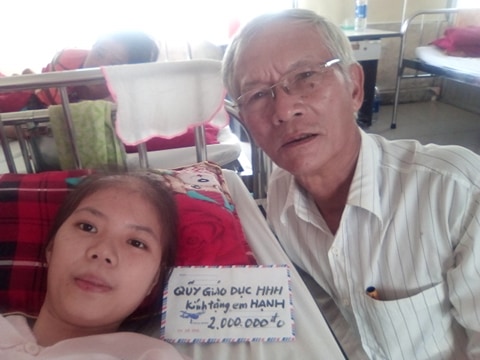 QUỸ GIÁO DỤC HHH
Kính tặng em HẠNH
2.000.000đ